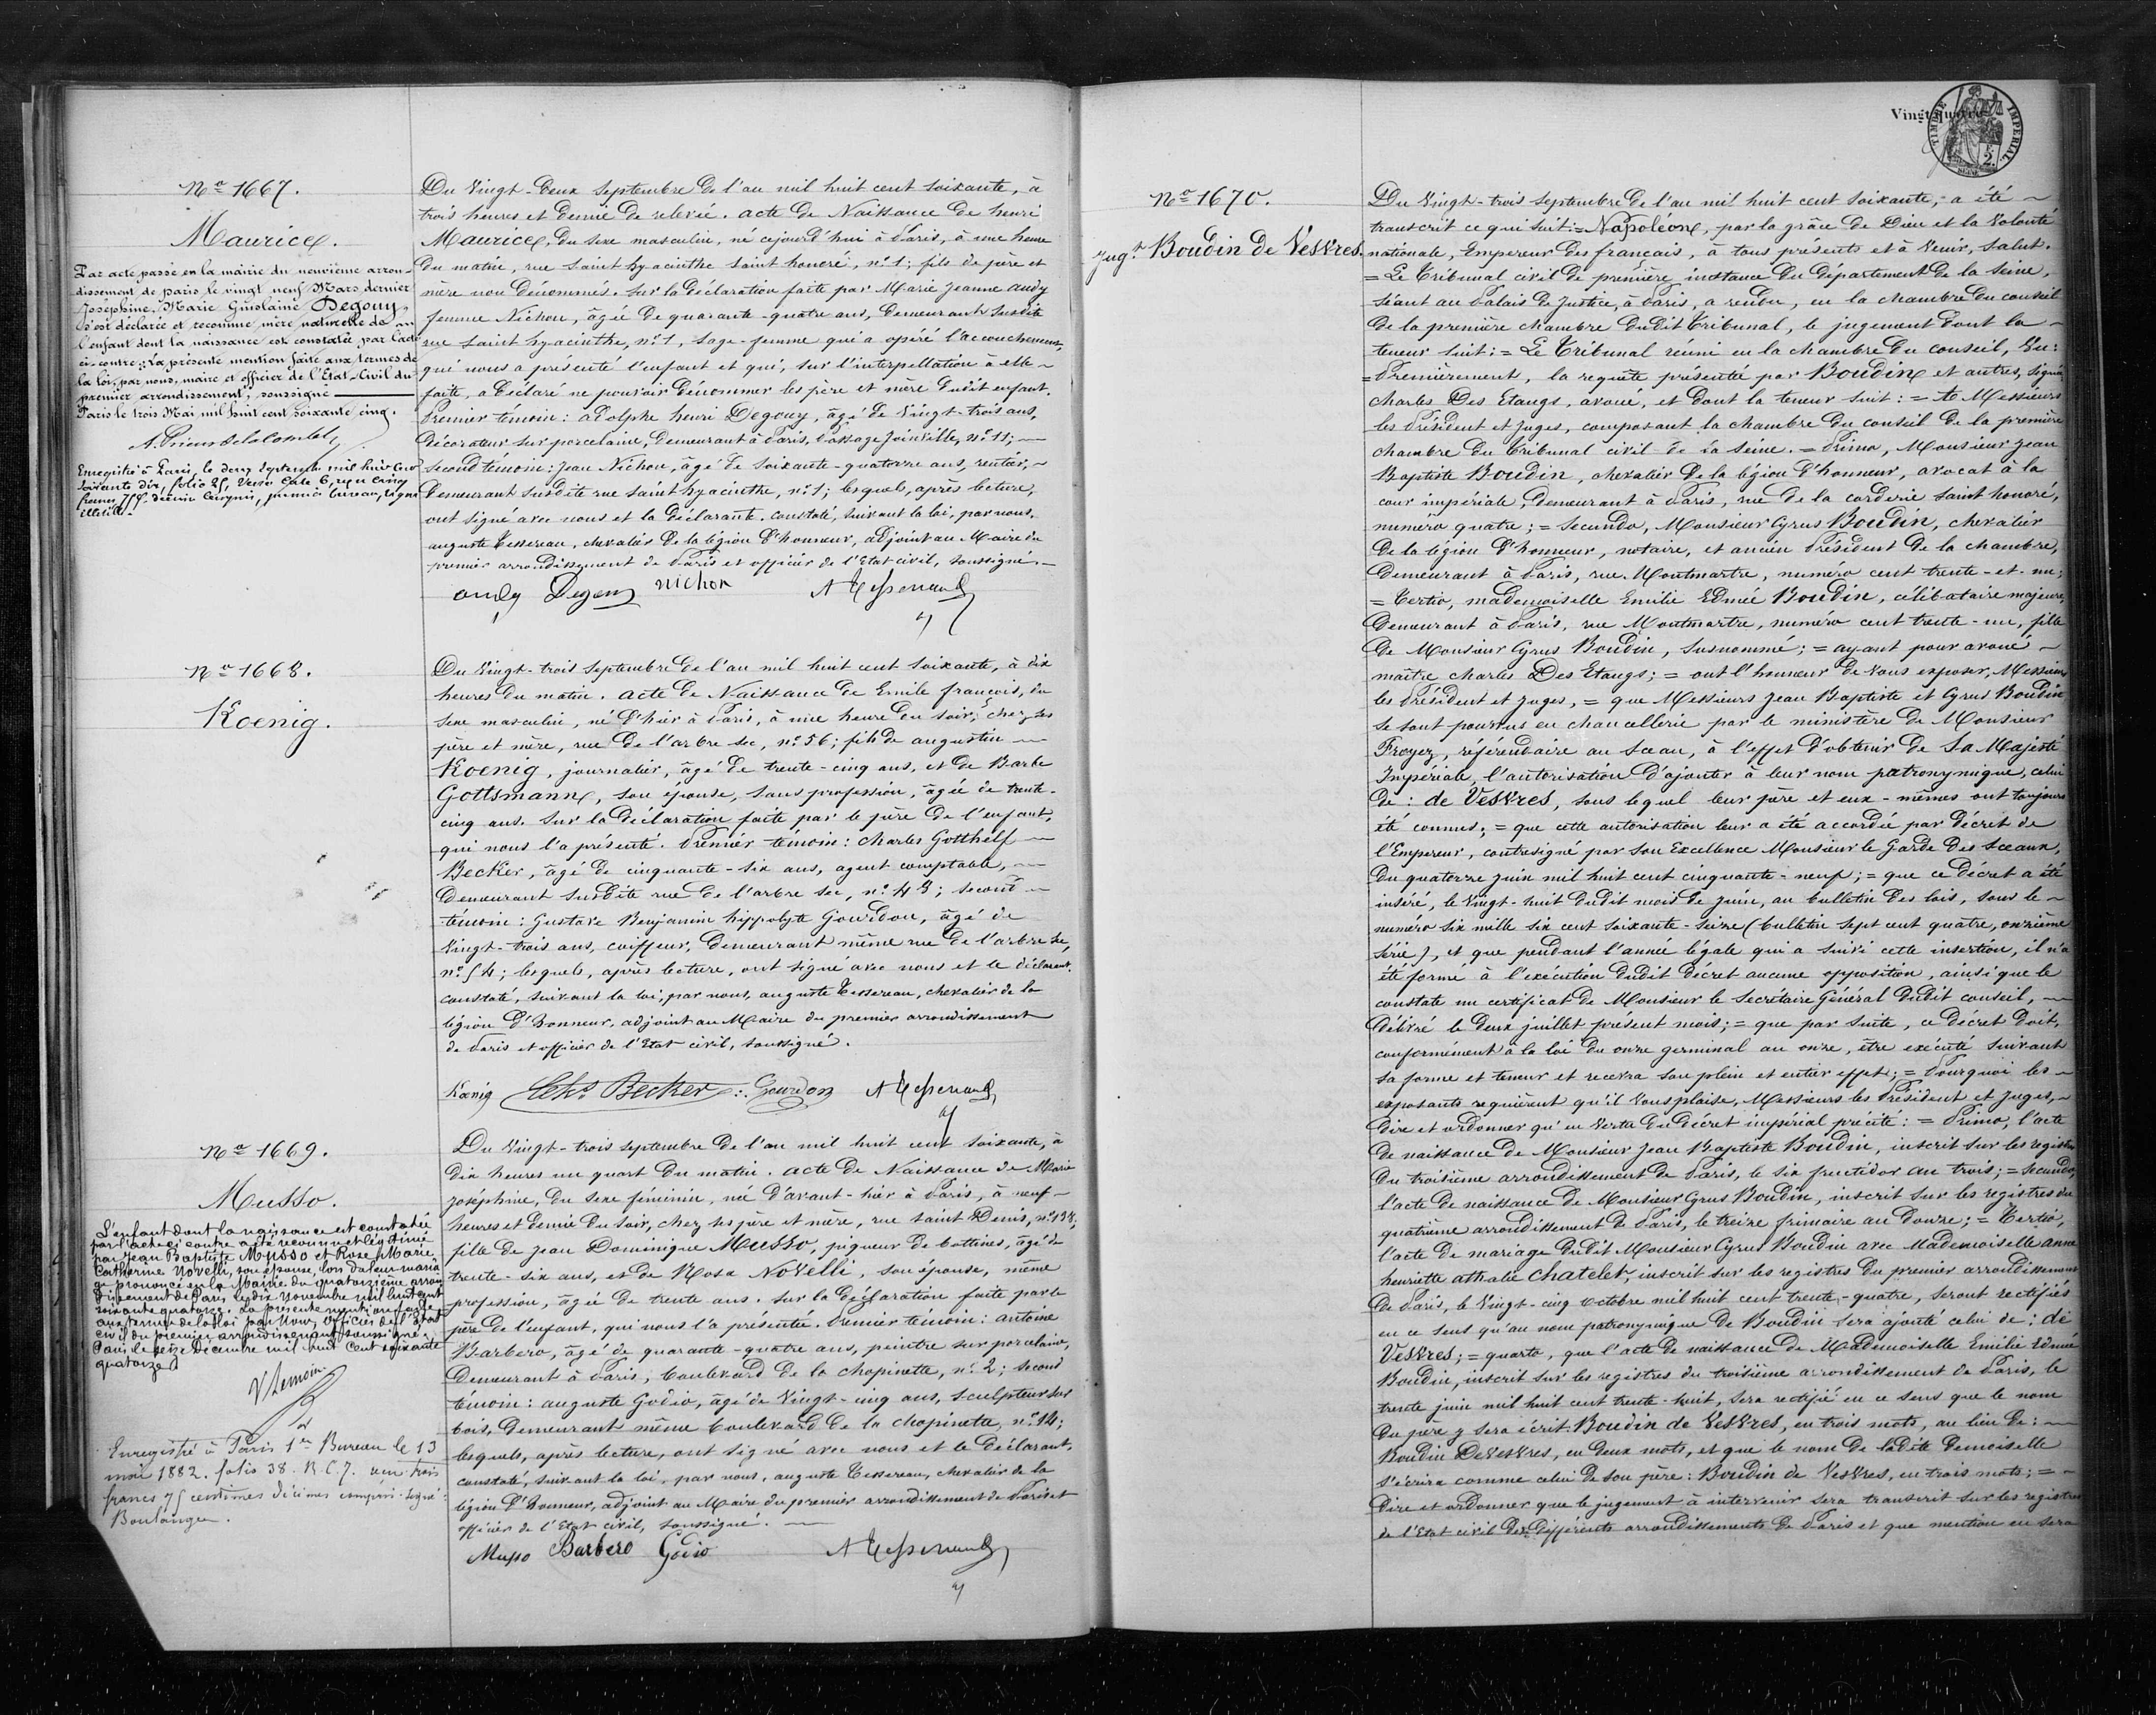 Nº 1667.
Maurice.
Par acte passé en la mairie du neuvième arron-
dissement de Paris le vingt neuf Mars dernier
Joséphine Marie Guislaine Degouy,
s'est déclarée et reconnue mère naturelle de
l'enfant dont la naissance est constatée par l'acte
ci-contre; La présente mention faite aux termes de
la loi, par nous, maire et officier de l'Etat-Civil du
premier arrondissement, soussigné
Paris le trois Mai mil huit cent soixante cinq.
Enregistré à Paris, le deux septembre mil huit cent
soixante dix, folio 25, verso Case 6, reçu cinq
francs, 75 c. décime compris, premier bureau, signé
illisible.
Du vingt-deux septembre de l'an mil huit cent soixante, à
trois heures et demie de relevée. acte de Naissance de henri
Maurice, du sexe masculin, né cejourd'hui à Paris, à une heure
du matin, rue saint hyacinthe saint honoré, nº 1; fils de père et
mère non dénommés. sur la déclaration faite par Marie Jeanne Audy
femme Nichon, âgée de quarante-quatre ans, demeurant susdite
rue saint hyacinthe, nº 1, sage-femme qui a opéré l'accouchement,
qui nous a présenté l'enfant et qui, sur l'interpellation à elle
faite, a déclaré ne pouvoir dénommer les père et mère dudit enfant.
Premier témoin: adolphe henri Degouy, âgé de vingt-trois ans,
décorateur sur porcelaine, demeurant à Paris, passage Joinville, nº 11;
second témoin: Jean Nichon, âgé de soixante-quatorze ans, rentier,
demeurant susdite rue saint hyacinthe, nº 1; lesquels, après lecture,
ont signé avec nous et la déclarante. constaté, suivant la loi, par nous,
auguste Tessereau, chevalier de la légion d'honneur, adjoint au Maire du
premier arrondissement de Paris et officier de l'Etat civil, soussigné.
Audy Degouy nichon A Tessereau
Nº 1668.
Koenig.
Du vingt-trois septembre de l'an mil huit cent soixante, à dix
heures du matin. acte de Naissance de Emile françois, du
sexe masculin, né d'hier à Paris, à une heure du soir, chez ses
père et mère, rue de l'arbre sec, nº 56; fils de augustin
Koenig, journalier, âgé de trente-cinq ans, et de Barbe
Gottsmann, son épouse, sans profession, âgée de trente-
cinq ans. sur la déclaration faite par le père de l'enfant,
qui nous l'a présenté. Premier témoin: charles Gotthelf
Becker, âgé de cinquante-six ans, agent comptable,
demeurant susdite rue de l'arbre sec, nº 43; second
témoin: Gustave Benjamin hippolyte Gourdon, âgé de
vingt-trois ans, coiffeur, demeurant même rue de l'arbre sec,
nº 54; lesquels, après lecture, ont signé avec nous et le déclarant.
constaté, suivant la loi, par nous, auguste Tessereau, chevalier de la
légion d'honneur, adjoint au Maire du premier arrondissement
de Paris et officier de l'Etat civil, soussigné.
Kœnig Chs Becker Gourdon A Tessereau
Nº 1669.
Musso.
L'enfant dont la naissance est constatée
par l'acte ci contre a été reconnu et légitimé
par Jean Baptiste Musso et Rose Marie
Catherine Novelli, son épouse, lors de leur maria-
ge prononcé en la Mairie du quatorzième arron-
dissement de Paris, le dix novembre mil huit cent
soixante quatorze. La présente mention faite
aux termes de la loi par Nous, officier de l'Etat
civil du premier arrondissement soussigné.
Paris le seize Décembre mil huit cent soixante
quatorze
V Lemoine
Enregistré à Paris 1er Bureau le 13
mai 1882. folio 38. R. C. 7. reçu trois
francs 75 centimes décimes compris. signé:
Boulanger.
Du vingt-trois septembre de l'an mil huit cent soixante, à
dix heures un quart du matin. acte de Naissance de Marie
Joséphine, du sexe féminin, née d'avant-hier à Paris, à neuf
heures et demie du soir, chez ses père et mère, rue saint Denis,
fille de Jean Dominique Musso, piqueur de bottines, âgé de
trente-six ans, et de Rosa Novelli, son épouse, même
profession, âgée de trente ans. sur la déclaration faite par le
père de l'enfant, qui nous l'a présentée. Premier témoin: antoine
Barbero, âgé de quarante-quatre ans, peintre sur porcelaine,
demeurant à Paris, boulevard de la chopinette, nº 2; second
témoin: auguste Godio, âgé de vingt-cinq ans, sculpteur sur
bois, demeurant même boulevard de la chopinette, nº 14;
lesquels, après lecture, ont signé avec nous et le déclarant.
constaté, suivant la loi, par nous, auguste Tessereau, chevalier de la
légion d'honneur, adjoint au Maire du premier arrondissement de Paris et
officier de l'Etat civil, soussigné.
Musso Barbero Godio A Tessereau
Vingt quatre
TIMBRE IMPÉRIAL
2.
SEINE
Nº 1670.
Jugt Boudin de Vesvres.
Du vingt-trois septembre de l'an mil huit cent soixante, a été
transcrit ce qui suit: = Napoléon, par la grâce de Dieu et la volonté
nationale, Empereur des français, à tous présents et à venir, salut.
= Le Tribunal civil de première instance du Département de la Seine,
séant au Palais de Justice, à Paris, a rendu, en la chambre du conseil
de la première chambre dudit Tribunal, le jugement dont la
teneur suit: = Le Tribunal réuni en la chambre du conseil, Vu:
= Premièrement, la requête présentée par Boudin et autres, signée
charles Des Etangs, avoué, et dont la teneur suit: = A Messieurs
les Président et Juges, composant la chambre du conseil de la première
chambre du Tribunal civil de la Seine. = Primo, Monsieur Jean
Baptiste Boudin, chevalier de la légion d'honneur, avocat à la
cour impériale, demeurant à Paris, rue de la corderie saint honoré,
numéro quatre; = secundo, Monsieur Cyrus Boudin, chevalier
de la légion d'honneur, notaire, et ancien Président de la chambre,
demeurant à Paris, rue Montmartre, numéro cent trente-et-un;
= Tertio, mademoiselle Emilie Edmée Boudin, célibataire majeure,
demeurant à Paris, rue Montmartre, numéro cent trente-un, fille
de Monsieur Cyrus Boudin, susnommé; = ayant pour avoué
maître charles Des Etangs; = ont l'honneur de vous exposer, Messieurs
les Président et Juges, = que Messieurs Jean Baptiste et Cyrus Boudin
se sont pourvus en chancellerie par le ministère de Monsieur
Froyez, référendaire au sceau, à l'effet d'obtenir de Sa Majesté
Impériale, l'autorisation d'ajouter à leur nom patronymique, celui
de: de Vesvres, sous lequel leur père et eux-mêmes ont toujours
été connus; = que cette autorisation leur a été accordée par décret de
l'Empereur, contresigné par son Excellence Monsieur le Garde des Sceaux,
du quatorze juin mil huit cent cinquante-neuf; = que ce décret a été
inséré, le vingt-huit dudit mois de juin, au bulletin des lois, sous le
numéro six mille six cent soixante-seize (bulletin sept cent quatre, onzième
série), et que pendant l'année légale qui a suivi cette insertion, il n'a
été formé à l'exécution dudit décret aucune opposition, ainsi que le
constate un certificat de Monsieur le Secrétaire Général dudit conseil,
délivré le deux juillet présent mois; = que par suite, ce décret doit,
conformément à la loi du onze germinal an onze, être exécuté suivant
sa forme et teneur et recevra son plein et entier effet; = Pourquoi les
exposants requièrent qu'il vous plaise, Messieurs les Président et Juges,
dire et ordonner qu'en vertu du décret impérial précité: = Primo, l'acte
de naissance de Monsieur Jean Baptiste Boudin, inscrit sur les registres
du troisième arrondissement de Paris, le six fructidor an trois; = secundo,
l'acte de naissance de Monsieur Cyrus Boudin, inscrit sur les registres du
quatrième arrondissement de Paris, le treize frimaire an douze; = Tertio,
l'acte de mariage dudit Monsieur Cyrus Boudin avec Mademoiselle anne
henriette athalie chatelet, inscrit sur les registres du premier arrondissement
de Paris, le vingt-cinq octobre mil huit cent trente-quatre, seront rectifiés
en ce sens qu'au nom patronymique de Boudin sera ajouté celui de: de
Vesvres; = quarto, que l'acte de naissance de Mademoiselle Emilie Edmée
Boudin, inscrit sur les registres du troisième arrondissement de Paris, le
trente juin mil huit cent trente-huit, sera rectifié en ce sens que le nom
du père y sera écrit: Boudin de Vesvres, en trois mots, au lieu de:
Boudin Devesvres, en deux mots, et que le nom de ladite demoiselle
s'écrira comme celui de son père: Boudin de Vesvres, en trois mots; =
dire et ordonner que le jugement à intervenir sera transcrit sur les registres
de l'Etat civil des différents arrondissements de Paris et que mention en sera